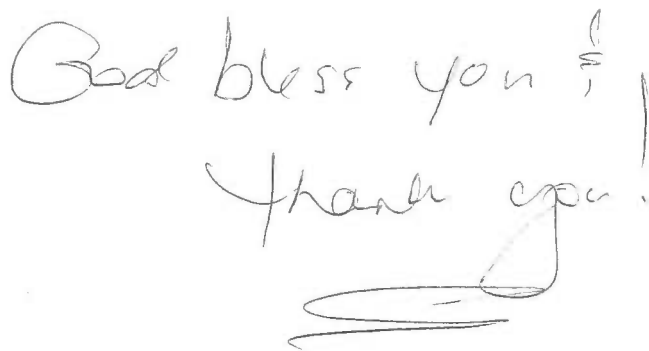 God bless you &
thank you!